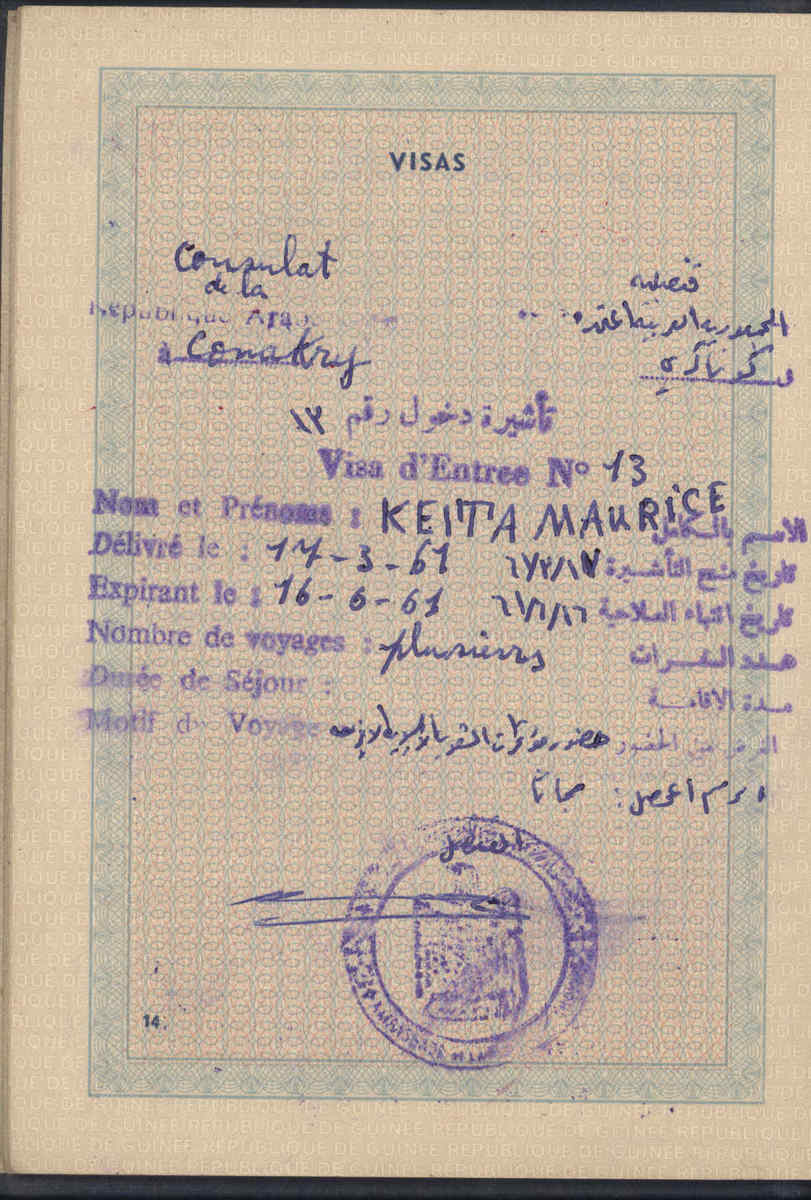 VISAS
Consulat قنصلية
de la
République Arab الجمهورية العربية المتحدة
à Conakry كوناكري
تأشيرة دخول رقم ١٣
Visa d'Entree Nº 13
Nom et Prénoms : KEITA MAURICE الاسم بالكامل
Délivré le : 17-3-61 تاريخ منح التأشيرة ٦١/٣/١٧
Expirant le : 16-6-61 تاريخ انتهاء الصلاحية ٦١/٦/١٦
Nombre de voyages : plusieurs عدد السفرات
Durée de Séjour : مدة الاقامة
Motif du Voyage الغرض من الحضور حضور مؤتمر الشعوب
مجانا
القنصل
14.